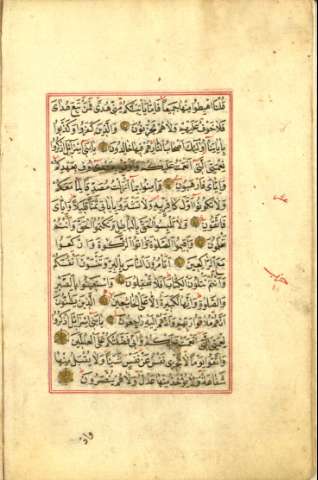 قُلْنَا اهْبِطُوا مِنْهَا جَمِيعًا فَاِمَّا يَاْتِيَنَّكُمْ مِنِّي هُدًى فَمَنْ تَبِعَ هُدَايَ
فَلَا خَوْفٌ عَلَيْهِمْ وَلَا هُمْ يَحْزَنُونَ وَالَّذِينَ كَفَرُوا وَكَذَّبُوا
بِاٰيَاتِنَا اُولٰئِكَ اَصْحَابُ النَّارِ هُمْ فِيهَا خَالِدُونَ يَا بَنِي اِسْرَائِيلَ اذْكُرُوا
نِعْمَتِيَ الَّتِي اَنْعَمْتُ عَلَيْكُمْ وَاَوْفُوا بِعَهْدِي اُوفِ بِعَهْدِكُمْ
وَاِيَّايَ فَارْهَبُونِ وَاٰمِنُوا بِمَا اَنْزَلْتُ مُصَدِّقًا لِمَا مَعَكُمْ
وَلَا تَكُونُوا اَوَّلَ كَافِرٍ بِهِ وَلَا تَشْتَرُوا بِاٰيَاتِي ثَمَنًا قَلِيلًا وَاِيَّايَ
فَاتَّقُونِ وَلَا تَلْبِسُوا الْحَقَّ بِالْبَاطِلِ وَتَكْتُمُوا الْحَقَّ وَاَنْتُمْ
تَعْلَمُونَ وَاَقِيمُوا الصَّلٰوةَ وَاٰتُوا الزَّكٰوةَ وَارْكَعُوا
مَعَ الرَّاكِعِينَ اَتَاْمُرُونَ النَّاسَ بِالْبِرِّ وَتَنْسَوْنَ اَنْفُسَكُمْ
وَاَنْتُمْ تَتْلُونَ الْكِتَابَ اَفَلَا تَعْقِلُونَ وَاسْتَعِينُوا بِالصَّبْرِ
وَالصَّلٰوةِ وَاِنَّهَا لَكَبِيرَةٌ اِلَّا عَلَى الْخَاشِعِينَ الَّذِينَ يَظُنُّونَ
اَنَّهُمْ مُلَاقُوا رَبِّهِمْ وَاَنَّهُمْ اِلَيْهِ رَاجِعُونَ يَا بَنِي اِسْرَائِيلَ اذْكُرُوا
نِعْمَتِيَ الَّتِي اَنْعَمْتُ عَلَيْكُمْ وَاَنِّي فَضَّلْتُكُمْ عَلَى الْعَالَمِينَ
وَاتَّقُوا يَوْمًا لَا تَجْزِي نَفْسٌ عَنْ نَفْسٍ شَيْئًا وَلَا يُقْبَلُ مِنْهَا
شَفَاعَةٌ وَلَا يُؤْخَذُ مِنْهَا عَدْلٌ وَلَا هُمْ يُنْصَرُونَ
واذ